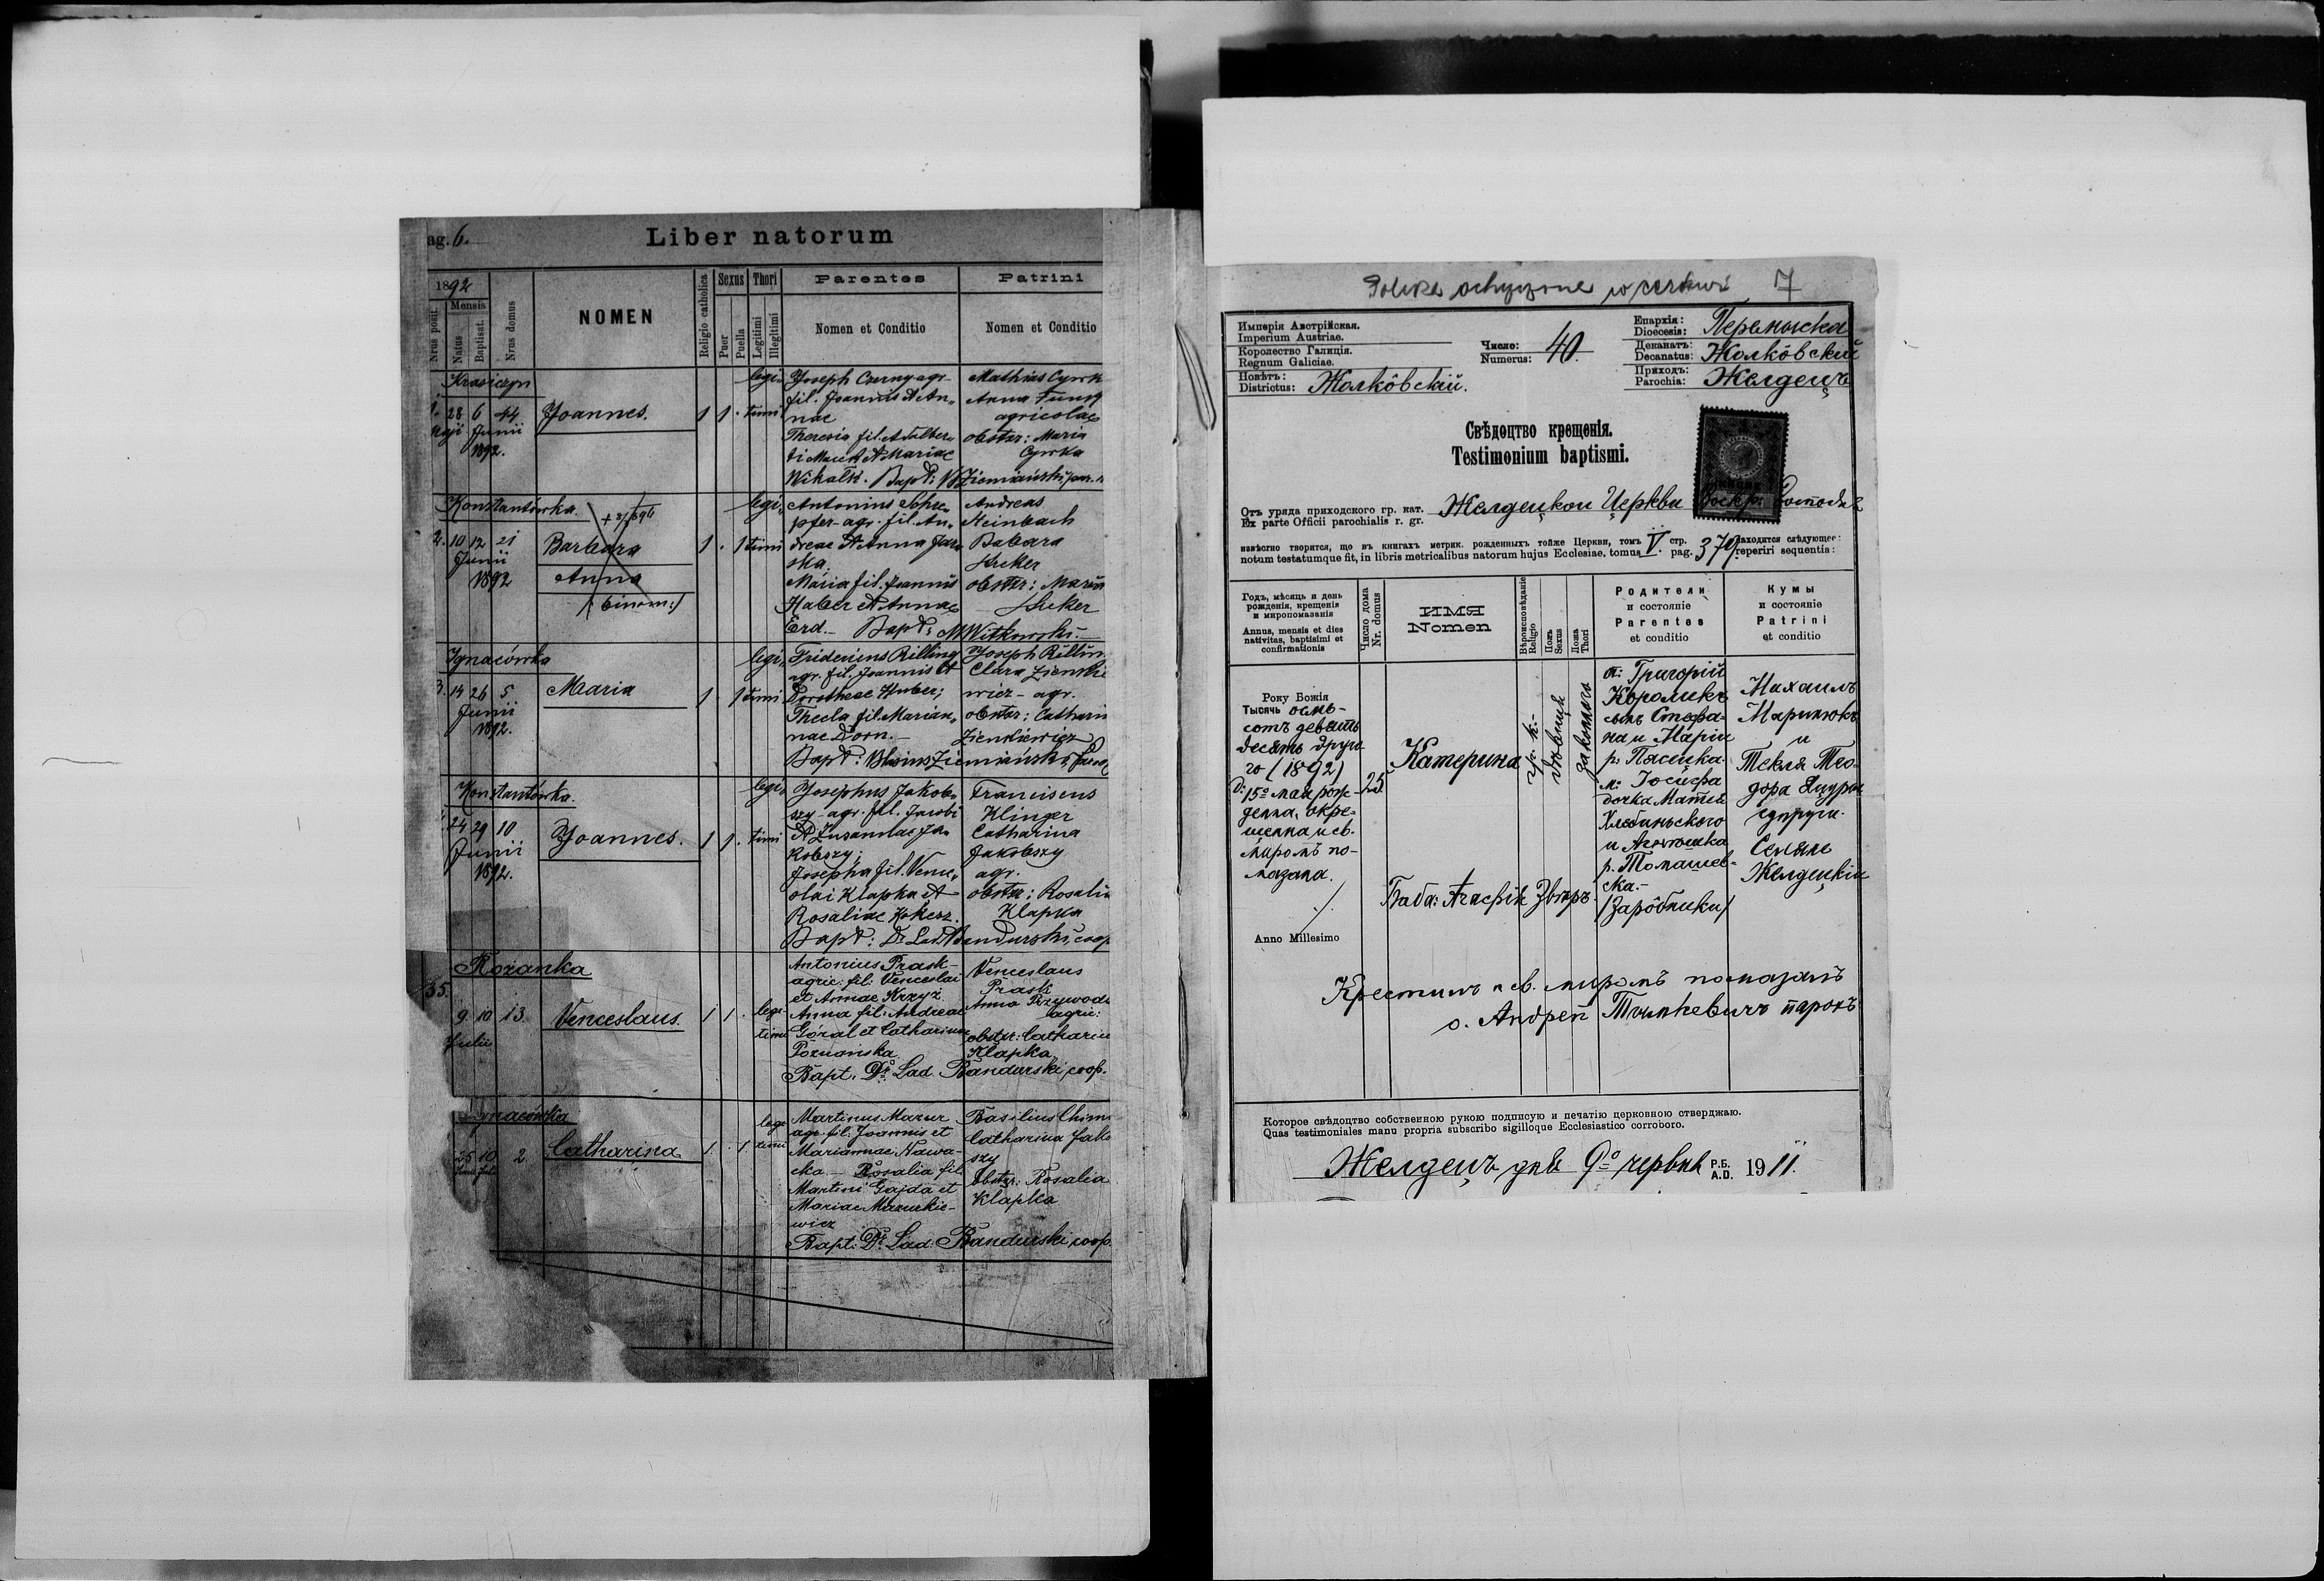 ag. 6.
Liber natorum
1892
Mensis
Nrus posit.
Natus
Baptisat.
Nrus domus
NOMEN
Religio catholica
Sexus
Puer
Puella
Thori
Legitimi
Illegitimi
Parentes
Nomen et Conditio
Patrini
Nomen et Conditio
Krasiczyn
28 6 44 Joannes. 1 1 . legi-
timi
Junii
1892.
Joseph Czerny agr-
fil. Joannis et An-
nae
Theresia fil. Adalber-
ti et Mariae
Bapt:
Mathias Cyrk
Anna
agricolae
obstr: Maria
Cyrka
Konstantówka.
2. 10 12 21 Barbara 1 . 1 legi-
timi
Junii
1892 Anna
(binom:)
Antonius Schu-
pfer-agr. fil. An-
dreae et Anna
Maria fil. Joannis
Haber et Annae
Erd. - Bapt: Witkowski.
Andreas
Steinbach
Babara
obstr: Maria
Ignacówka
3. 14 26 5 Maria 1 . 1 legi-
timi
Junii
1892.
Fridericus Rilling
agr. fil. Joannis et
Dorotheae Huber;
Thecla fil. Marian-
nae Dorn.-
Joseph Rillin
Clara Zienkie
wicz - agr.
obstr: Catharin
Zienkiewicz
Konstantówka.
24 29 10 Joannes. 1 1 . legi-
timi
Junii
1892.
Josephus Jakob-
szy-agr. fil. Jacobi
et Zusannae Ja-
kobszy;
Josepha fil. Vence-
slai Klapka et
Rosaliae Kokesz.
Bapt: Dr Lad. Bandurski, coop
Franciscus
Klinger
Catharina
Jakobszy
agr.
obstr: Rosalia
Klapka
Rozanka
35.
9 10 13. Venceslaus. 1 1 . legi-
timi
Julii
Antonius Prask-
agric: fil: Venceslai
et Annae Krzyż.
Anna fil: Andreae
Góral et Catharinae
Poznańska.
Bapt. Dr Lad. Bandurski coop.
Venceslaus
Prask
Anna Przywoda
agric:
obstr: Catharin
Klapka
Ignacówka
25 10 2 Catharina 1. . 1. legi
timi
Martinus Mazur
agr. fil: Joannis et
Mariannae Nawa-
cka - Rosalia fil.
Martini Gajda et
Mariae Mazurkie-
wicz
Bapt: Dr Lad: Bandurski coop.
Basilius
Catharina Jako
szy
Obstr: Rosalia
Klapka
w cerkwi 7
Имперія Австрійская.
Imperium Austriae.
Королество Галиція.
Regnum Galiciae.
Повѣтъ:
Districtus: Жолкôвскій.
Число:
Numerus: 40.
Епархія:
Dioecesis: Перемыска
Деканатъ:
Decanatus: Жолкôвскій
Приходъ:
Parochia: Желдець
Свѣдоцтво крещенія.
Testimonium baptismi.
Отъ уряда приходского гр. кат.
Ex parte Officii parochialis r. gr. Желдецкои Церкви Воскр. Господня
извѣстно творится, що въ книгахъ метрик. рожденныхъ тойже Церкви, томъ V. стр. 379. находится слѣдующее:
notum testatumque fit, in libris metricalibus natorum hujus Ecclesiae, tomus pag. reperiri sequentia:
Годъ, мѣсяць и день
рожденія, крещенія
и миропомазанія
Annus, mensis et dies
nativitas, baptisimi et
confirmationis
Число дома
Nr. domus
ИМЯ
Nomen
Вѣроисповѣданіе
Religio
Полъ
Sexus
Ложа
Thori
Родители
и состояніе
Parentes
et conditio
Кумы
и состояніе
Patrini
et conditio
Року Божія
Тысячь осмь-
сотъ девять
десять друго
го (1892)
д. 15º мая рож-
денна, окре-
щенна и св.
миромъ по-
мазана.
Anno Millesimo
25
Катерина
гр. к.-
дѣвиця
законного
о: Григорій
Королик
сынъ Стефа-
на и Маріи
р. Пасѣка.
м: Іосифа
дочка Матея
Хлѣбинского
р. Томашев-
ска.-
/Зарôбники/
Михаилъ
Маринюкъ
и
Текля Тео-
дора
супруги.
Селяне
Желдецкіи
Баба:
Крестилъ и св. миромъ помазалъ
о. Андрей парохъ
Которое свѣдоцтво собственною рукою подписую и печатію церковною отверджаю.
Quas testimoniales manu propria subscribo sigilloque Ecclesiastico corroboro.
Желдець дня 9º червня Р.Б.
A.D. 1911.